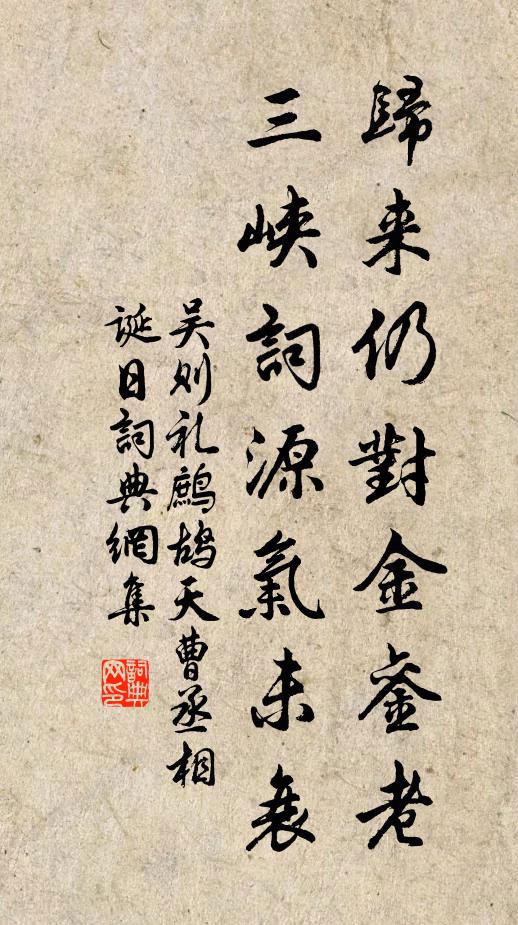 歸来仍對金銮老
三峽詞源氣未衰
吴则礼鹧鸪天曹丞相
誕日詞典網集
詞典网印